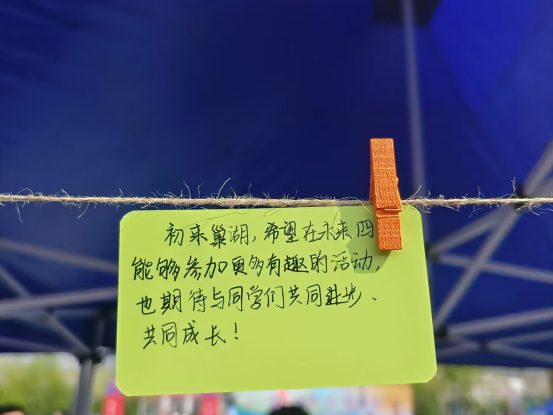 初来巢湖，希望在未来四
能够参加更多有趣的活动，
也期待与同学们共同进步、
共同成长！